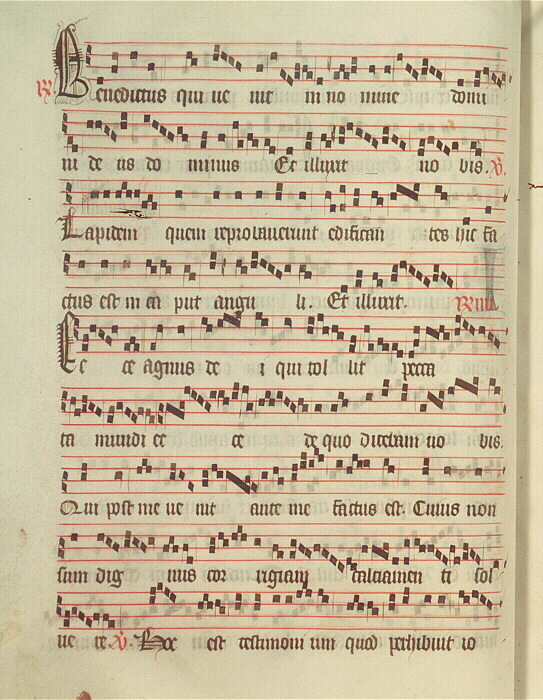 ℟. Benedictus qui ue nit in no mine domi
ni de us do minus Et illuxit no bis. ℣.
Lapidem quem reprobauerunt edifican tes hic fa
ctus est in ca put angu li. Et illuxit.
Ec ce agnus de i qui tol lit pecca
ta mundi ec ce de quo dicebam uo bis.
Qui post me ue nit ante me factus est. Cuius non
sum dig nus cor rigiam calciamen ti sol
ue re ℣. Hoc est testimoni um quod perhibuit io